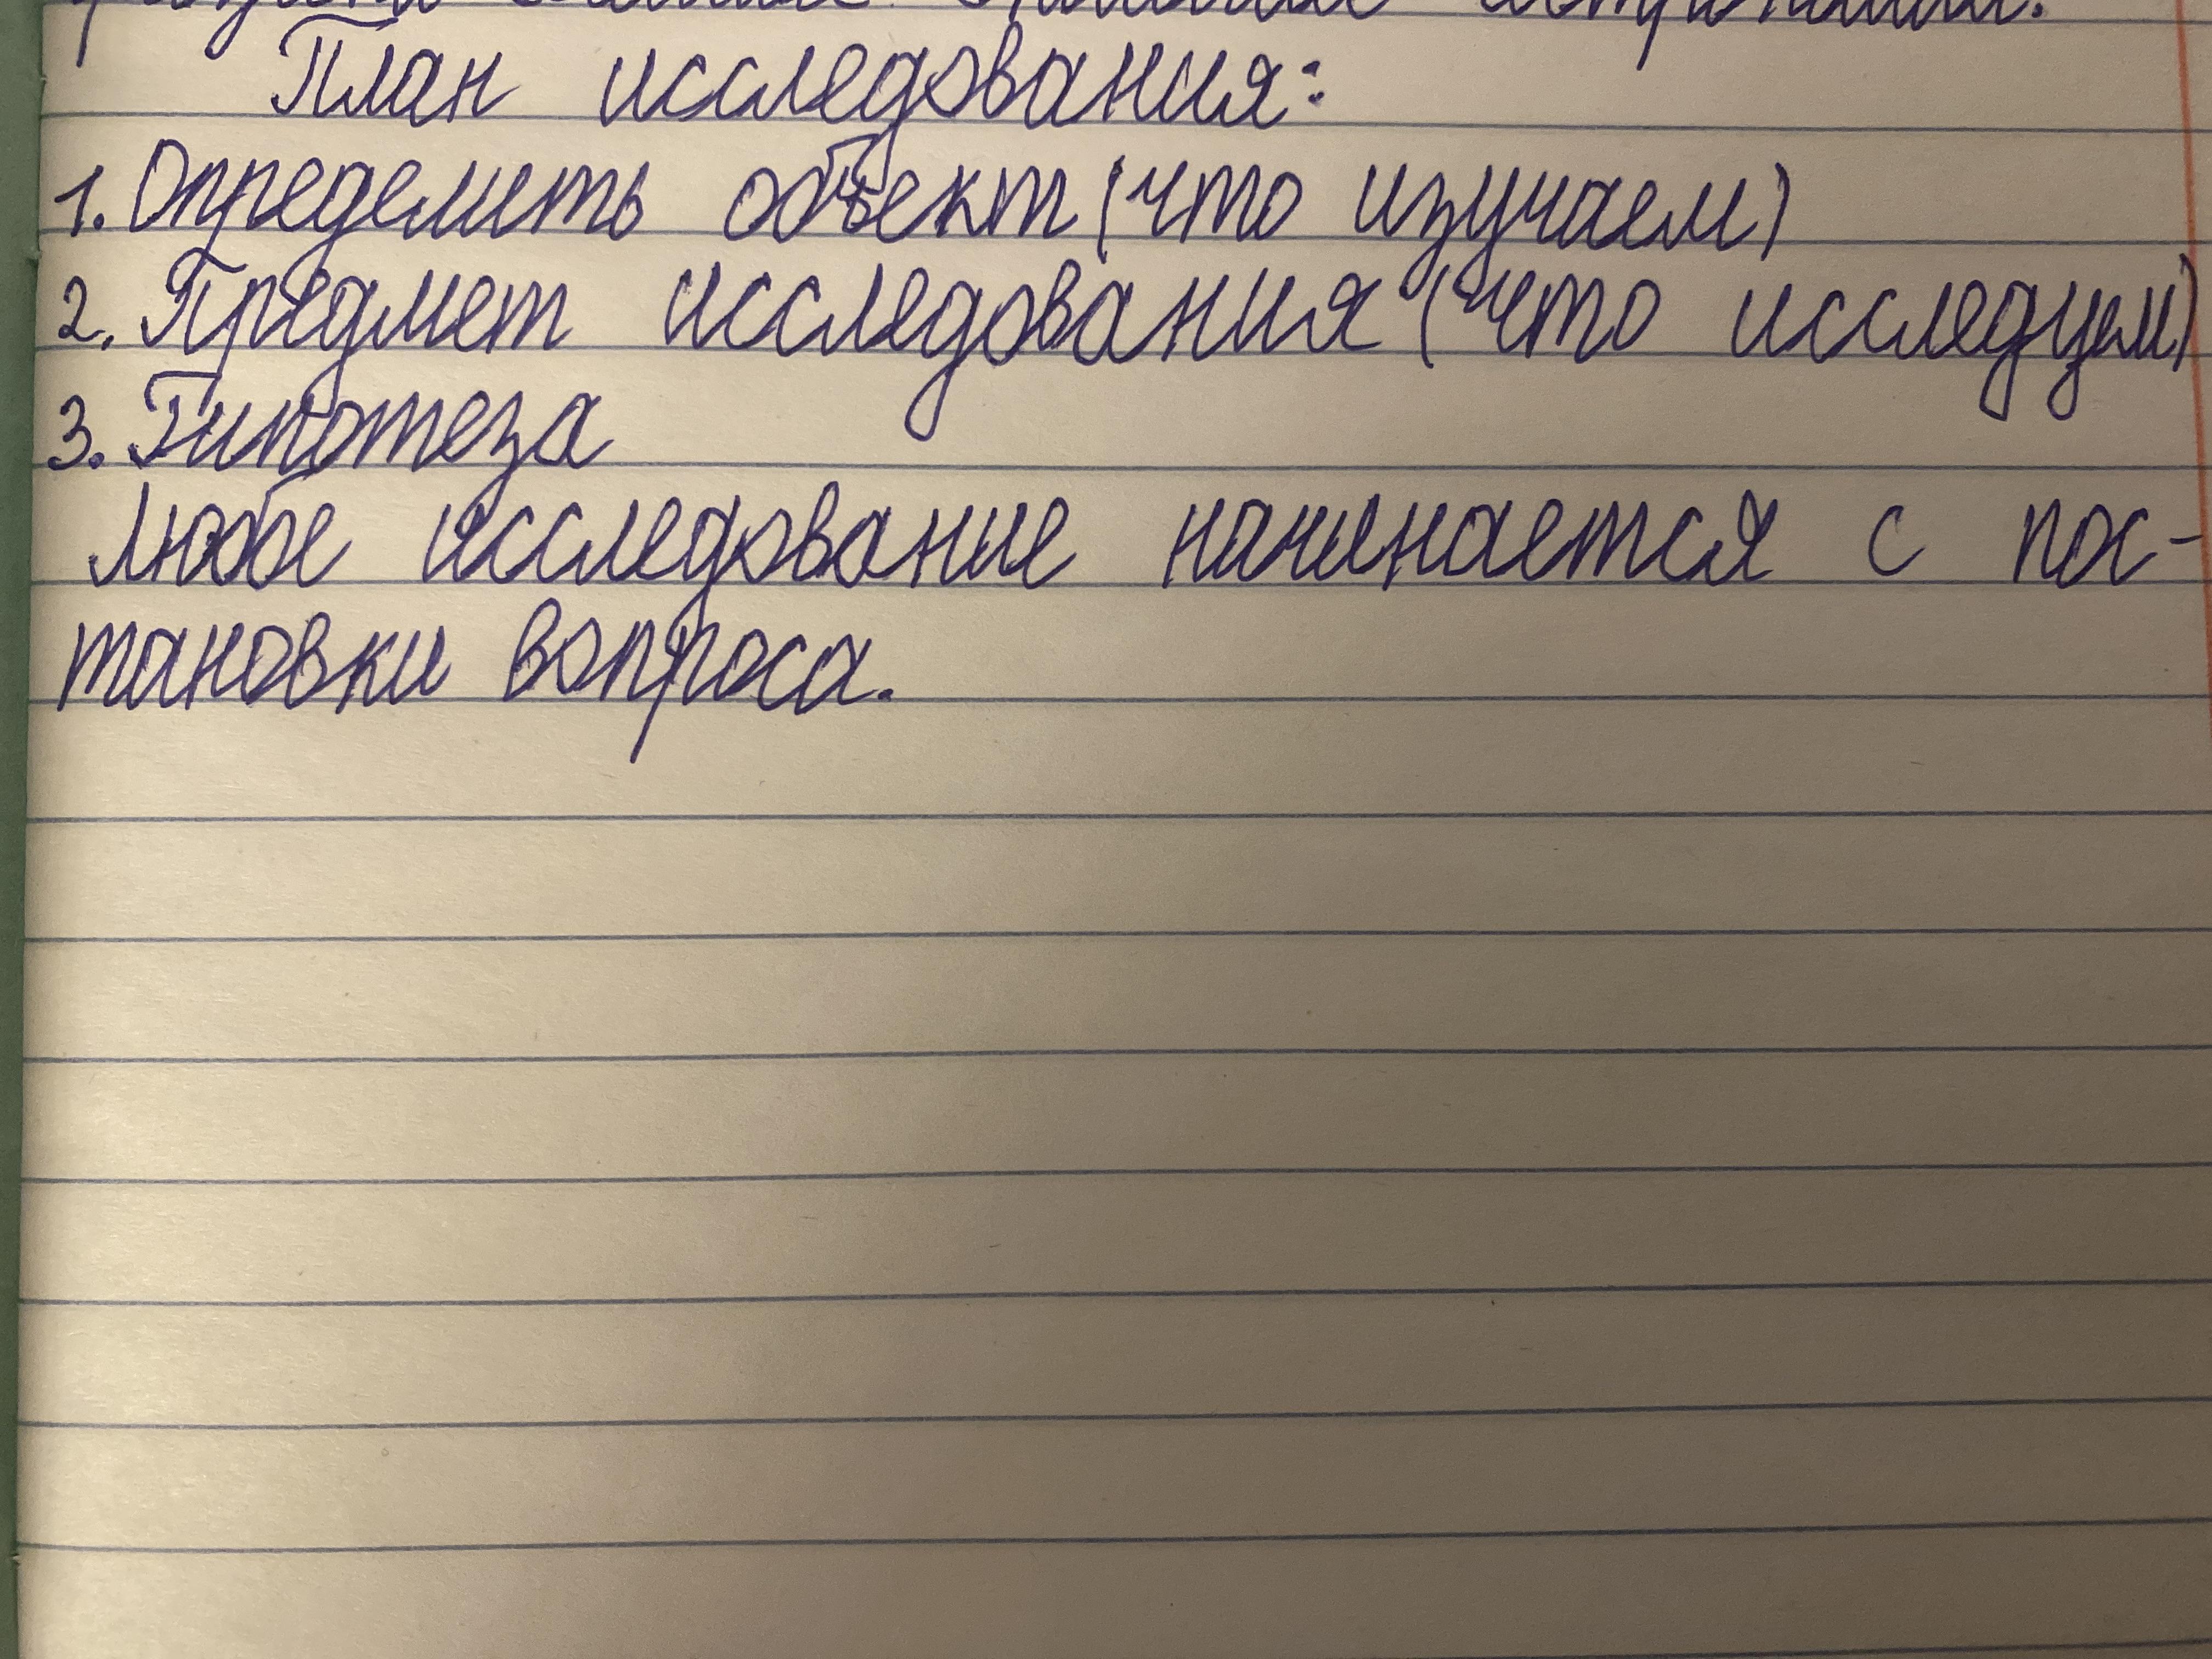 План исследования:
1. Определить объект (что изучаем)
2. Предмет исследования (что исследуем)
3. Гипотеза
Любое исследование начинается с пос-
тановки вопроса.